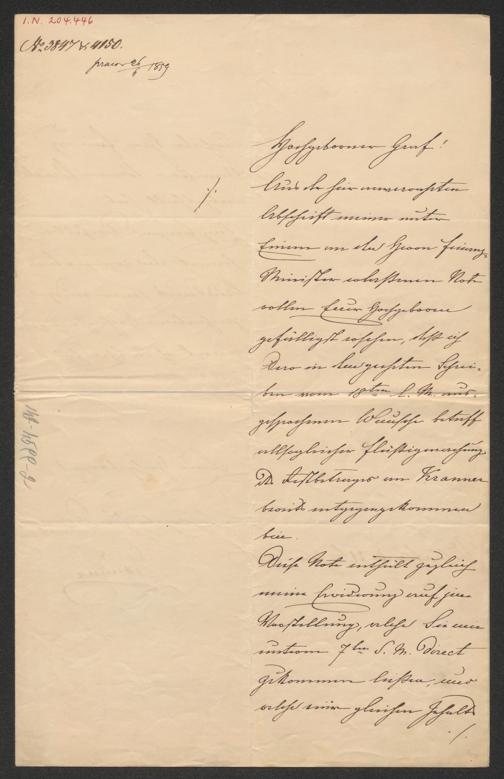 I.N. 204.446
No 3847 & 4150.
praes 26/6 1859
Hochgeborner Graf!
Aus der hier verwahrten
Abschrift meiner unter
Einem an den Herrn Finanz-
Minister erlaßenen Note
wollen Euer Hochgeboren
gefälligst ersehen, daß ich
Dero in dem geehrten Schrei-
ben vom 18ten l. M. aus-
gesprochenen Wunsche betreff
allsogleicher Flüßigmachung
des Restbetrages an Kranner
bereits entgegengekommen
bin.
Diese Note enthält zugleich
meine Erwiderung auf jene
Vorstellung, welche Sie mir
unterm 7ten d. M. direct
zukommen ließen, und
welche mir gleichen Inhalts
./.
./.